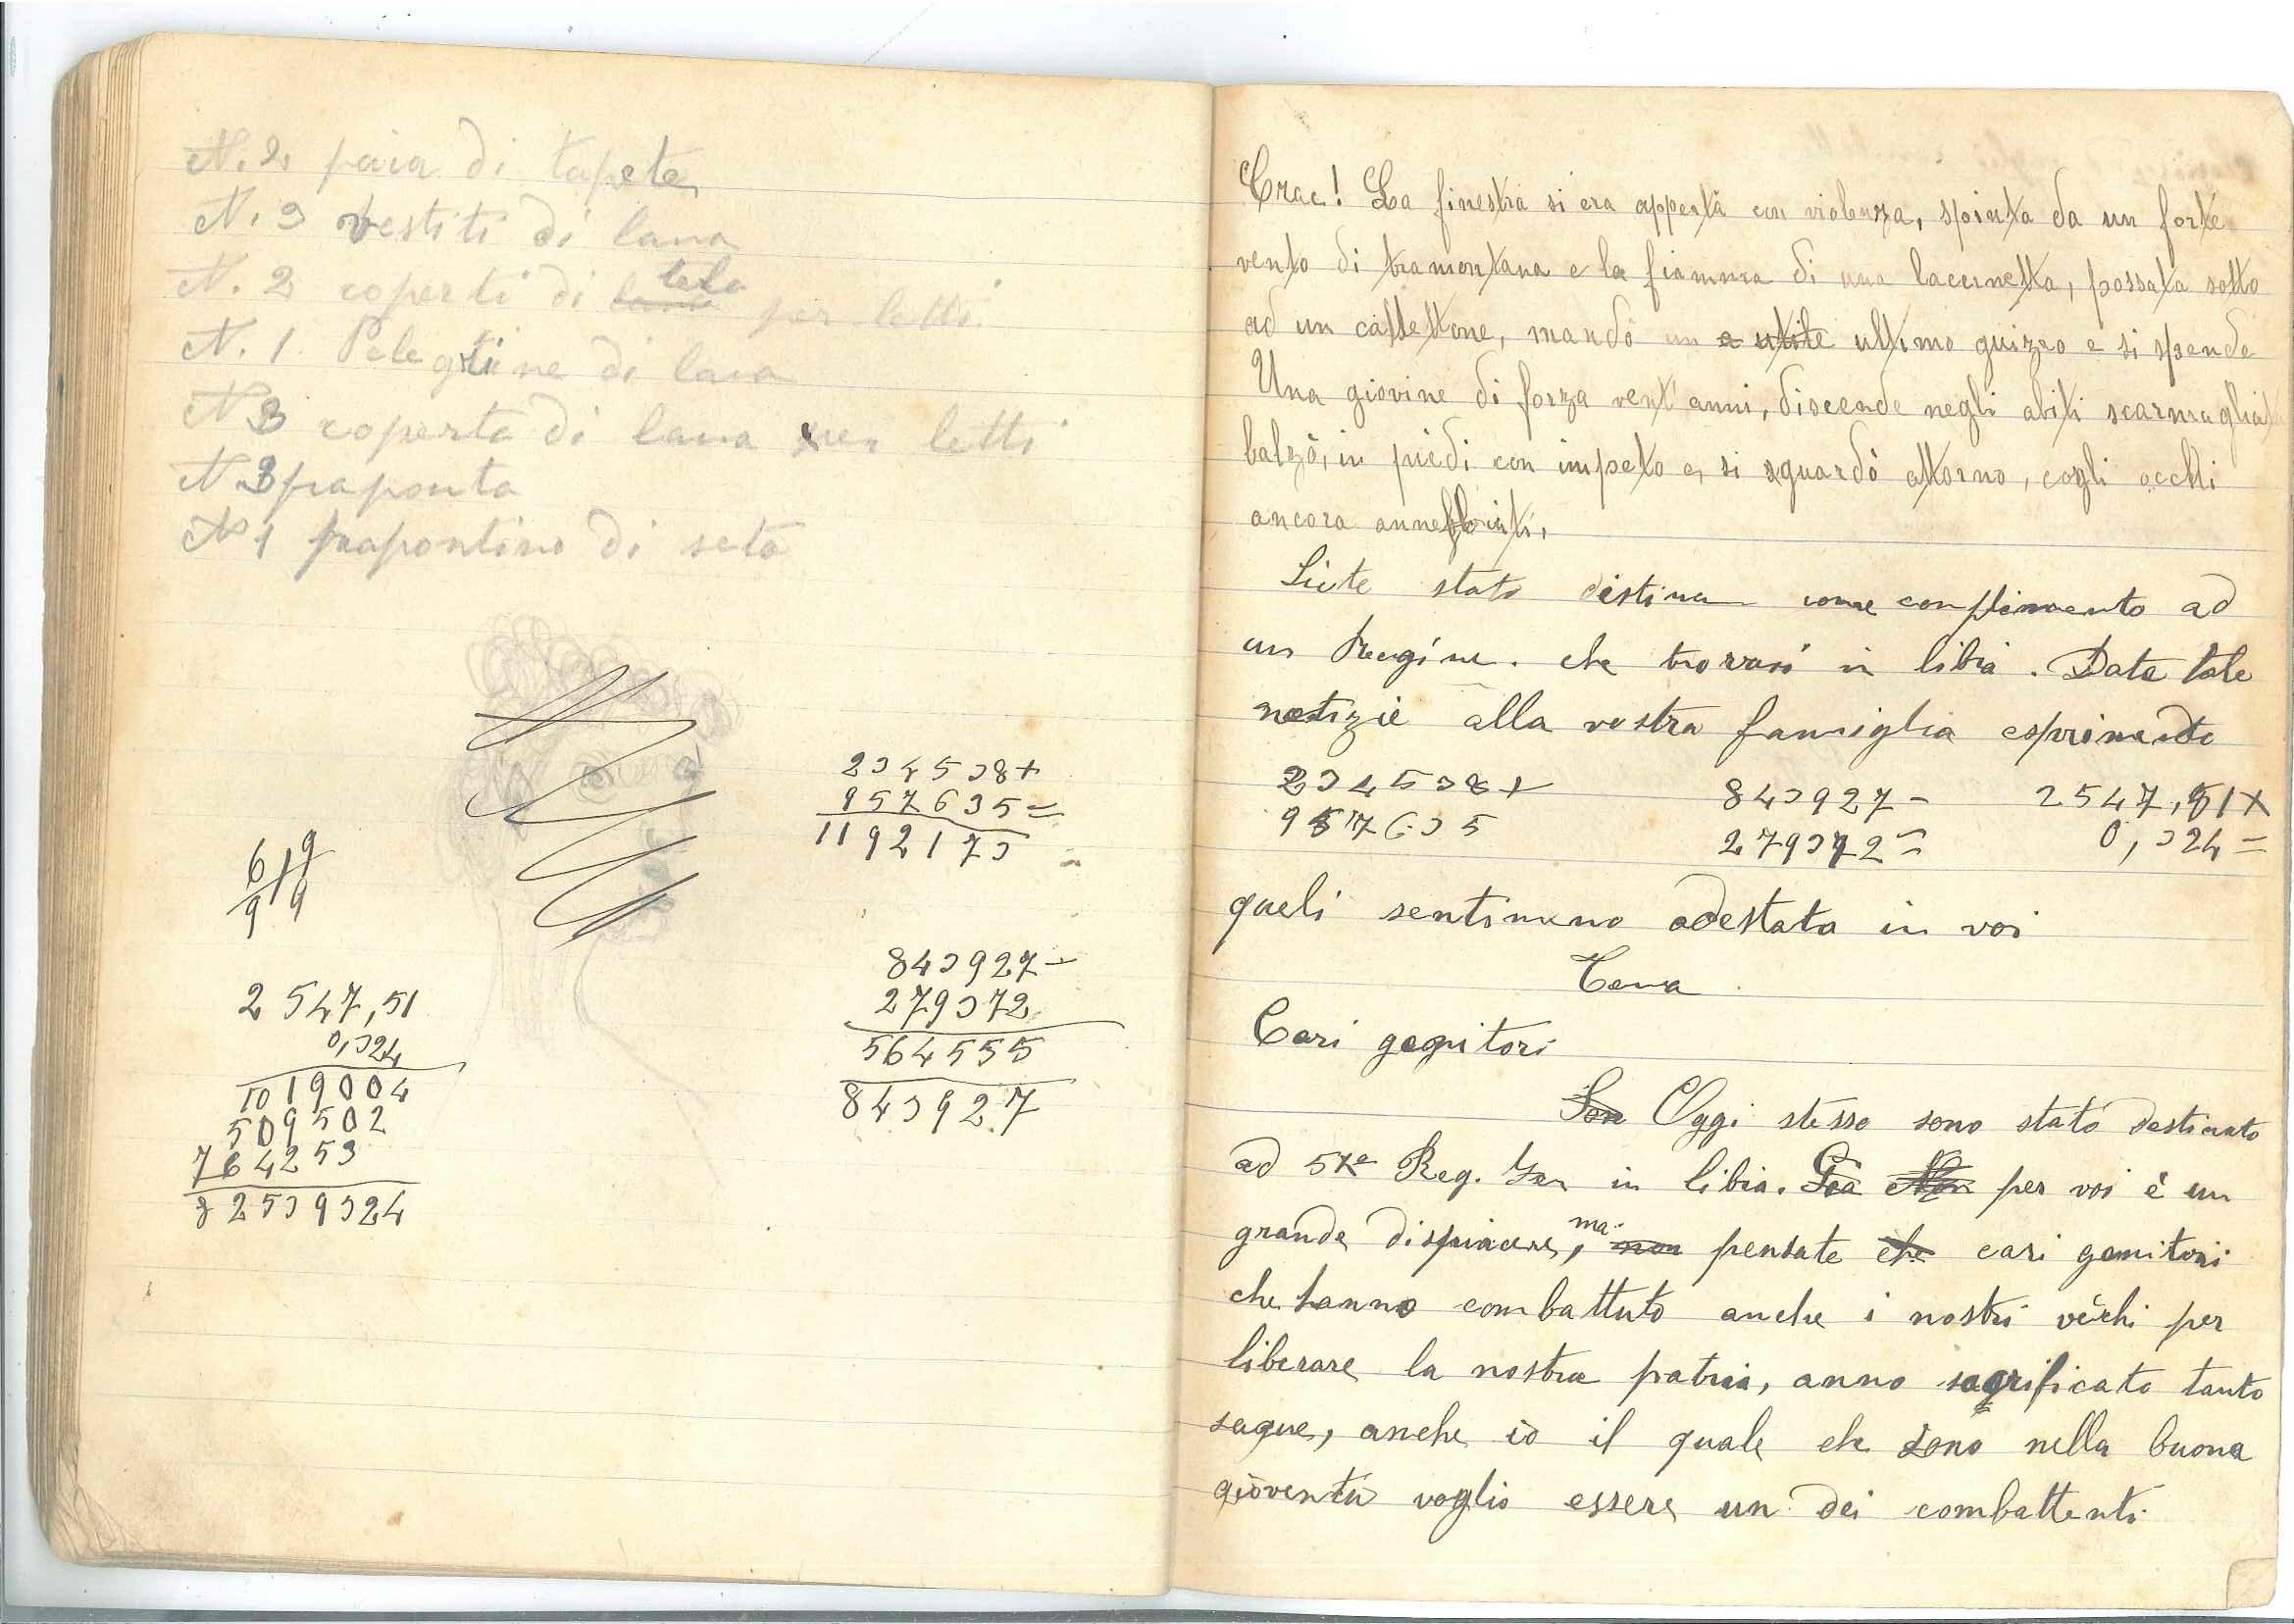 N. 2 paia di tapete
N. 3 vestiti di lana
N. 2 coperti di lana tela per letti
N. 1 Pelegrine di lana
N 3 coperta di lana per letti
N 3 praponta
N 1 prapontino di seta
234538+
957635=
1192173
6 9
9 9
843927-
279372
564555
843927
2547,51
0,324
1019004
509502
764253
82539324
Crac! La finestra si era apperta con violenza, spinta da un forte
vento di tramontana e la fiamma di una lacernetta, possata sotto
ad un cassettone, mandò un e utile ultimo guizzo e si spende
Una giovine di forza vent'anni, discende negli abiti scarmigliati
balzò, in piedi con impeto e, si sguardò attorno, cogli occhi
ancora annebbiati.
Siete stato destina come complimento ad
un Reggine. che trovasi in libia. Date tale
notizie alla vostra famiglia esprimendo
234538+ 843927- 2547,51x
957635 279372= 0,324=
queli sentimeno adestata in voi
Tema
Cari gegnitori
Son Oggi stesso sono stato destinato
ad 57º Reg. Fan in libia. Già Non per voi è un
grande dispiacere, ma non pensate che cari genitori
che hanno combattuto anche i nostri vechi per
liberare la nostra patria, anno sagrificato tanto
sague, anche io il quale che sono nella buona
gioventù voglio essere un dei combattenti